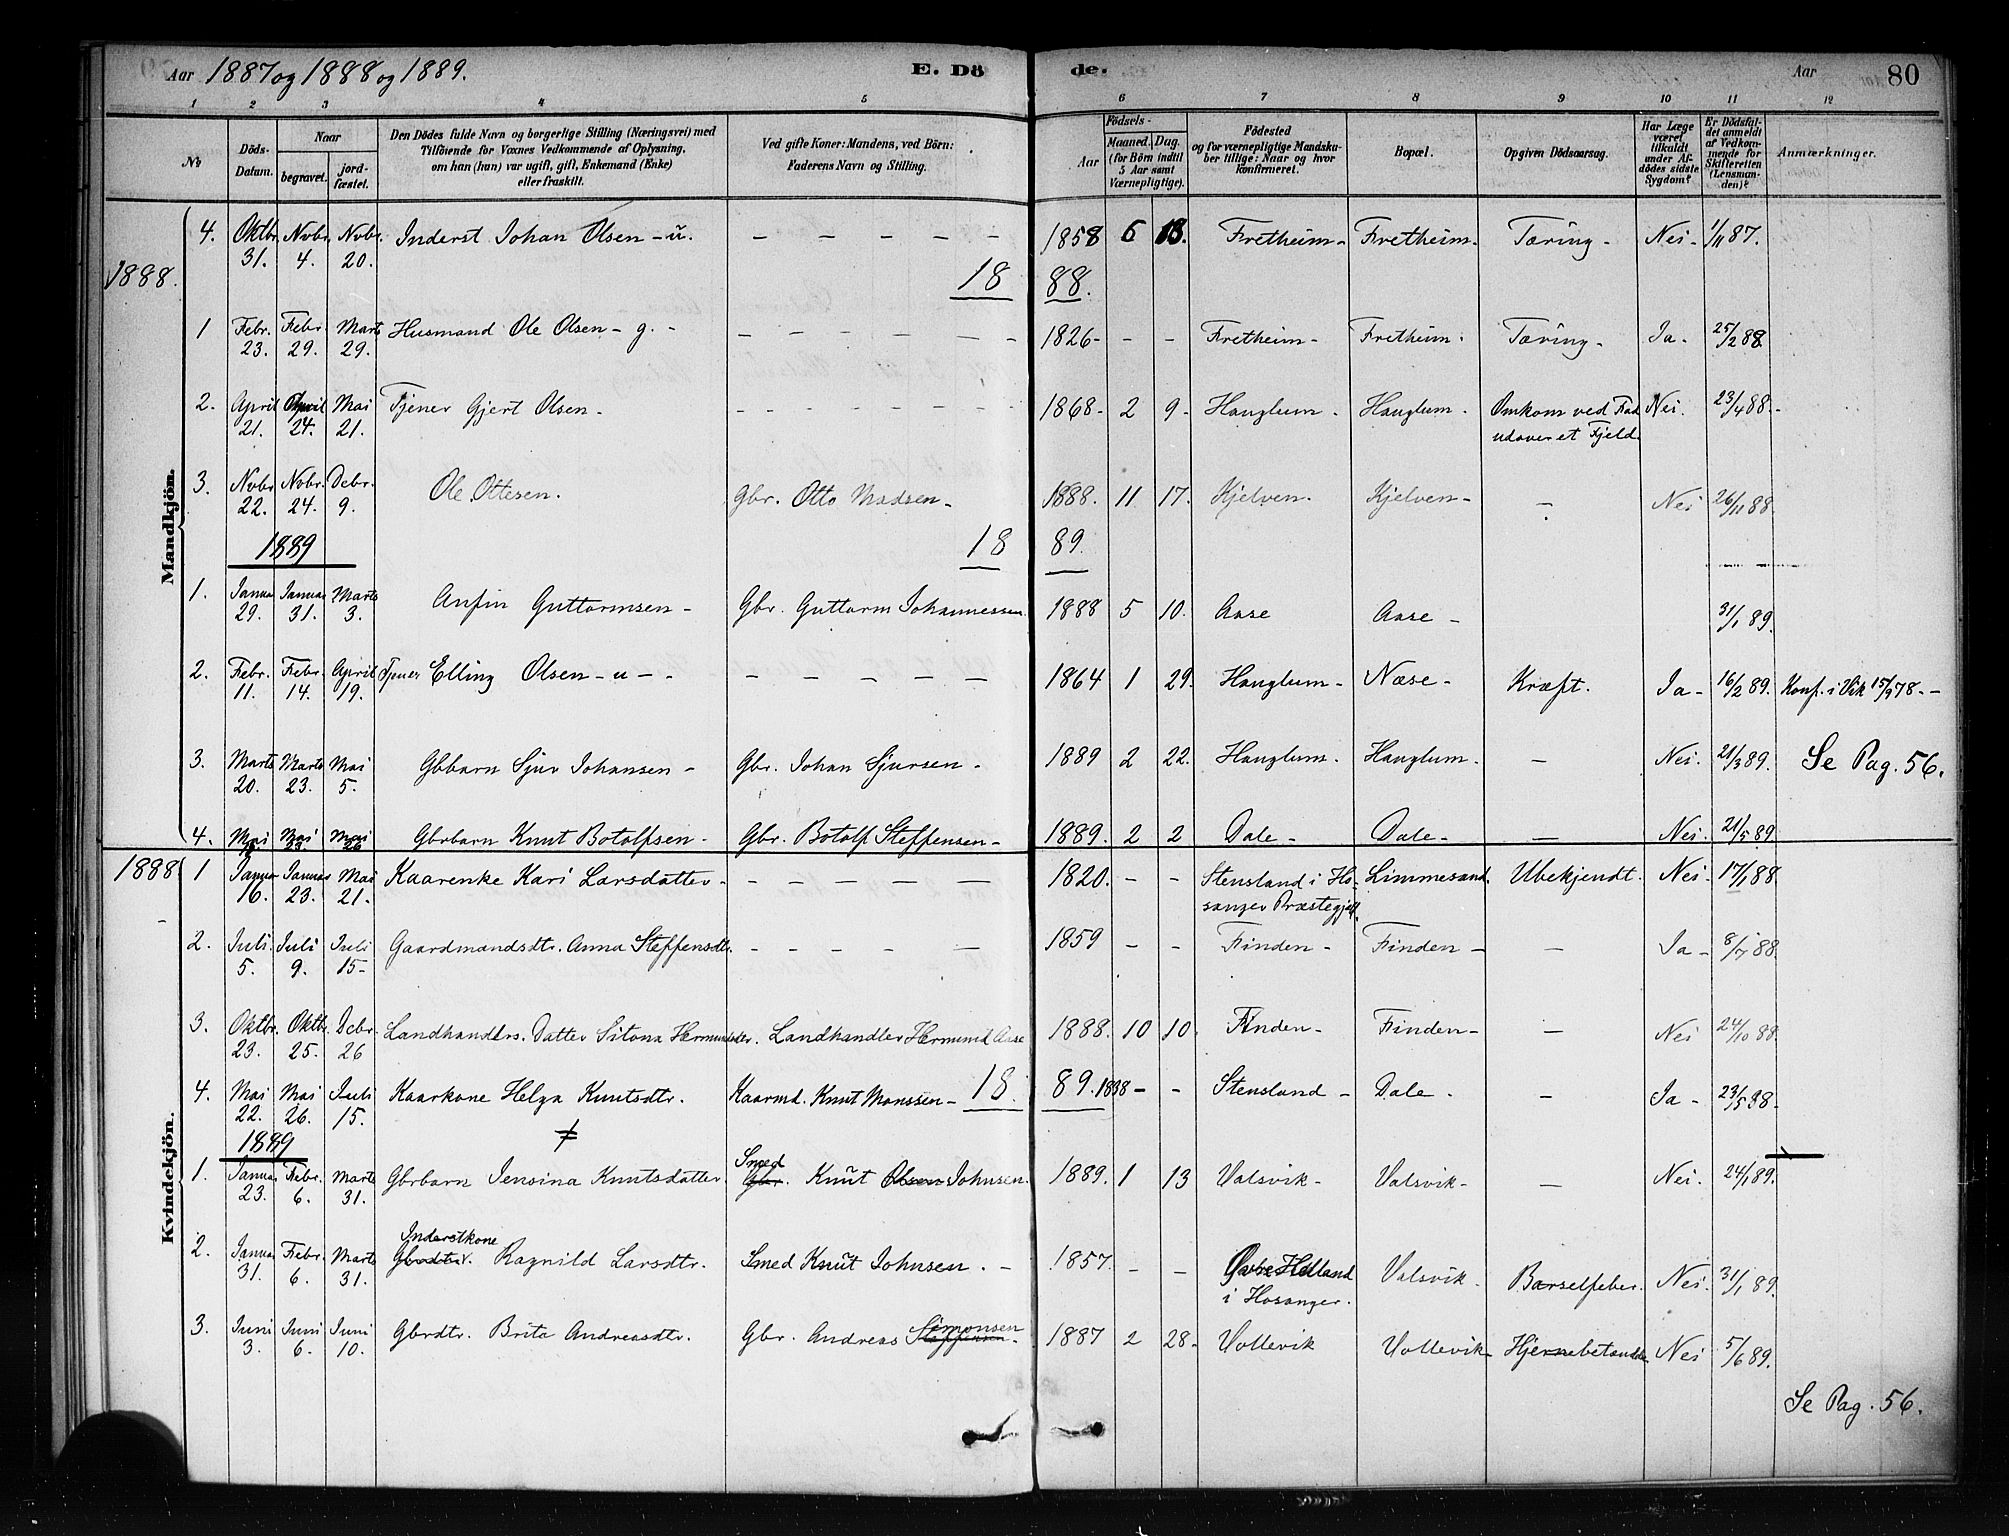 Aar 1887 og 1888 og 1889. E. Dö de. Aar 80
1 2 3 4 5 6 7 8 9 10 11 12
No
Döds-Datum.
Naar
begravet.
jord-fæstet.
Den Dödes fulde Navn og borgerlige Stilling (Næringsvei) med
Tilföiende for Voxnes Vedkommende af Oplysning,
om han (hun) var ugift, gift, Enkemand (Enke)
eller fraskilt.
Ved gifte Koner: Mandens, ved Börn:
Faderens Navn og Stilling.
Födsels-
Aar
Maaned. Dag.
(for Börn indtil
5 Aar samt
Værnepligtige).
Födested
og for værnepligtige Mandsku-
ber tillige: Naar og hvor
konfirmeret.
Bopæl.
Opgiven Dödsaarsag.
Har Læge
været
tilkaldt
under Af-
dödes sidste
Sygdom?
Er Dödsfal-
det anmeldt
af Vedkom-
mende for
Skifteretten
(Lensman-
den)?
Anmærkninger.
Mandkjön.
4. Oktbr. 31. Novbr. 4. Novbr. 20. Inderst Johan Olsen - u. — — — — — 1858 6 13. Fretheim - Fretheim - Tæring - Nei - 1/11 87.
1888. 18 88.
1 Febr. 23. Febr. 29. Marts 29. Husmand Ole Olsen - g. - — — — — — 1826 - - - Fretheim - Fretheim. Tæring - Ja - 25/2 88.
2. April 21. April 24. Mai 21. Tjener Gjert Olsen - - - - - - - - 1868 - 2 9 - Hanglum - Hanglum - Omkom ved Fad Nei. 23/4 88. -
udover et Fjeld.
3. Novbr. 22. Novbr. 24. Debr. 9. Ole Ottesen. Gbr. Otto Madsen - 1888. 11 17. Kjelven. Kjelven - — Nei 26/11 88.
1889 18 89.
1. Januar 29. Januar 31. Marts 3. Anfin Guttormsen - Gbr. Guttorm Johannessen 1888 5 10. Aase Aase - 31/1 89.
2. Febr. 11. Febr. 14. April 19. Tjener Elling Olsen - u - - — — — — — 1864 1 29. Hanglum - Næse - Kræft. Ja - 16/2 89. Konf. i Vik 15/9 78. -
3. Marts 20. Marts 23. Mai 5. Gbbarn Sjur Johansen - Gbr. Johan Sjursen - 1889 2 22. Hanglum. Hanglum. — Nei. 21/3 89. Se Pag. 56.
4. Mai Mai 23. Mai 26 Gbrbarn Knut Botolfsen - Gbr. Botolf Steffensen - 1889. 2 2 Dale - Dale - — Nei. 21/5 89.
Kvindekjön.
1888. 1 Januar 16. Januar 23. Mai 21. Kaarenke Kari Larsdatter - — — — — — 1820. - - Stensland i Ho- Limmesand. Ubekjendt. Nei - 17/1 88.
sanger Præstegjeld.
2. Juli 5. Juli 9. Juli 15 - Gaardmandsdtr. Anna Steffensdtr. - - - - — 1859 - - Finden - Finden - — Ja - 8/7 88.
3. Oktbr. 23. Oktbr. 25. Debr. 26 Landhandlers. Datter Sitona Hermundsdtr. Landhandler Hermund Aase 1888. 10 10. Finden - Finden - — Nei 24/10 88.
4. Mai 22. Mai 26. Juli 15. Kaarkone Helga Knutsdtr. Kaarmd. Knut Monssen - 18. 89. 1838 - - Stensland - Dale - — Ja - 23/5 88 -
1889 ≠
1. Januar 23. Febr. 6. Marts 31. Gbrbarn Jensina Knutsdatter Smed Gbr. Knut Olsen Johnsen. 1889. 1 13 Valsvik - Valsvik - — Nei. 24/1 89.
2. Januar 31. Febr. 6. Marts 31. Inderstkone Gbrdtr. Ragnild Larsdtr. Smed Knut Johnsen. - 1857. - - Øvre Helland Valsvik - Barselfeber. Nei. 31/1 89.
i Hosanger.
3. Juni 3. Juni 6. Juni 10. Gbrdtr. Brita Andreasdtr. Gbr. Andreas Steffensen Simonsen - 1887 2 28 - Vollevik Vollevik - Hjernebetændelse Nei 5/6 89.
Se Pag. 56.